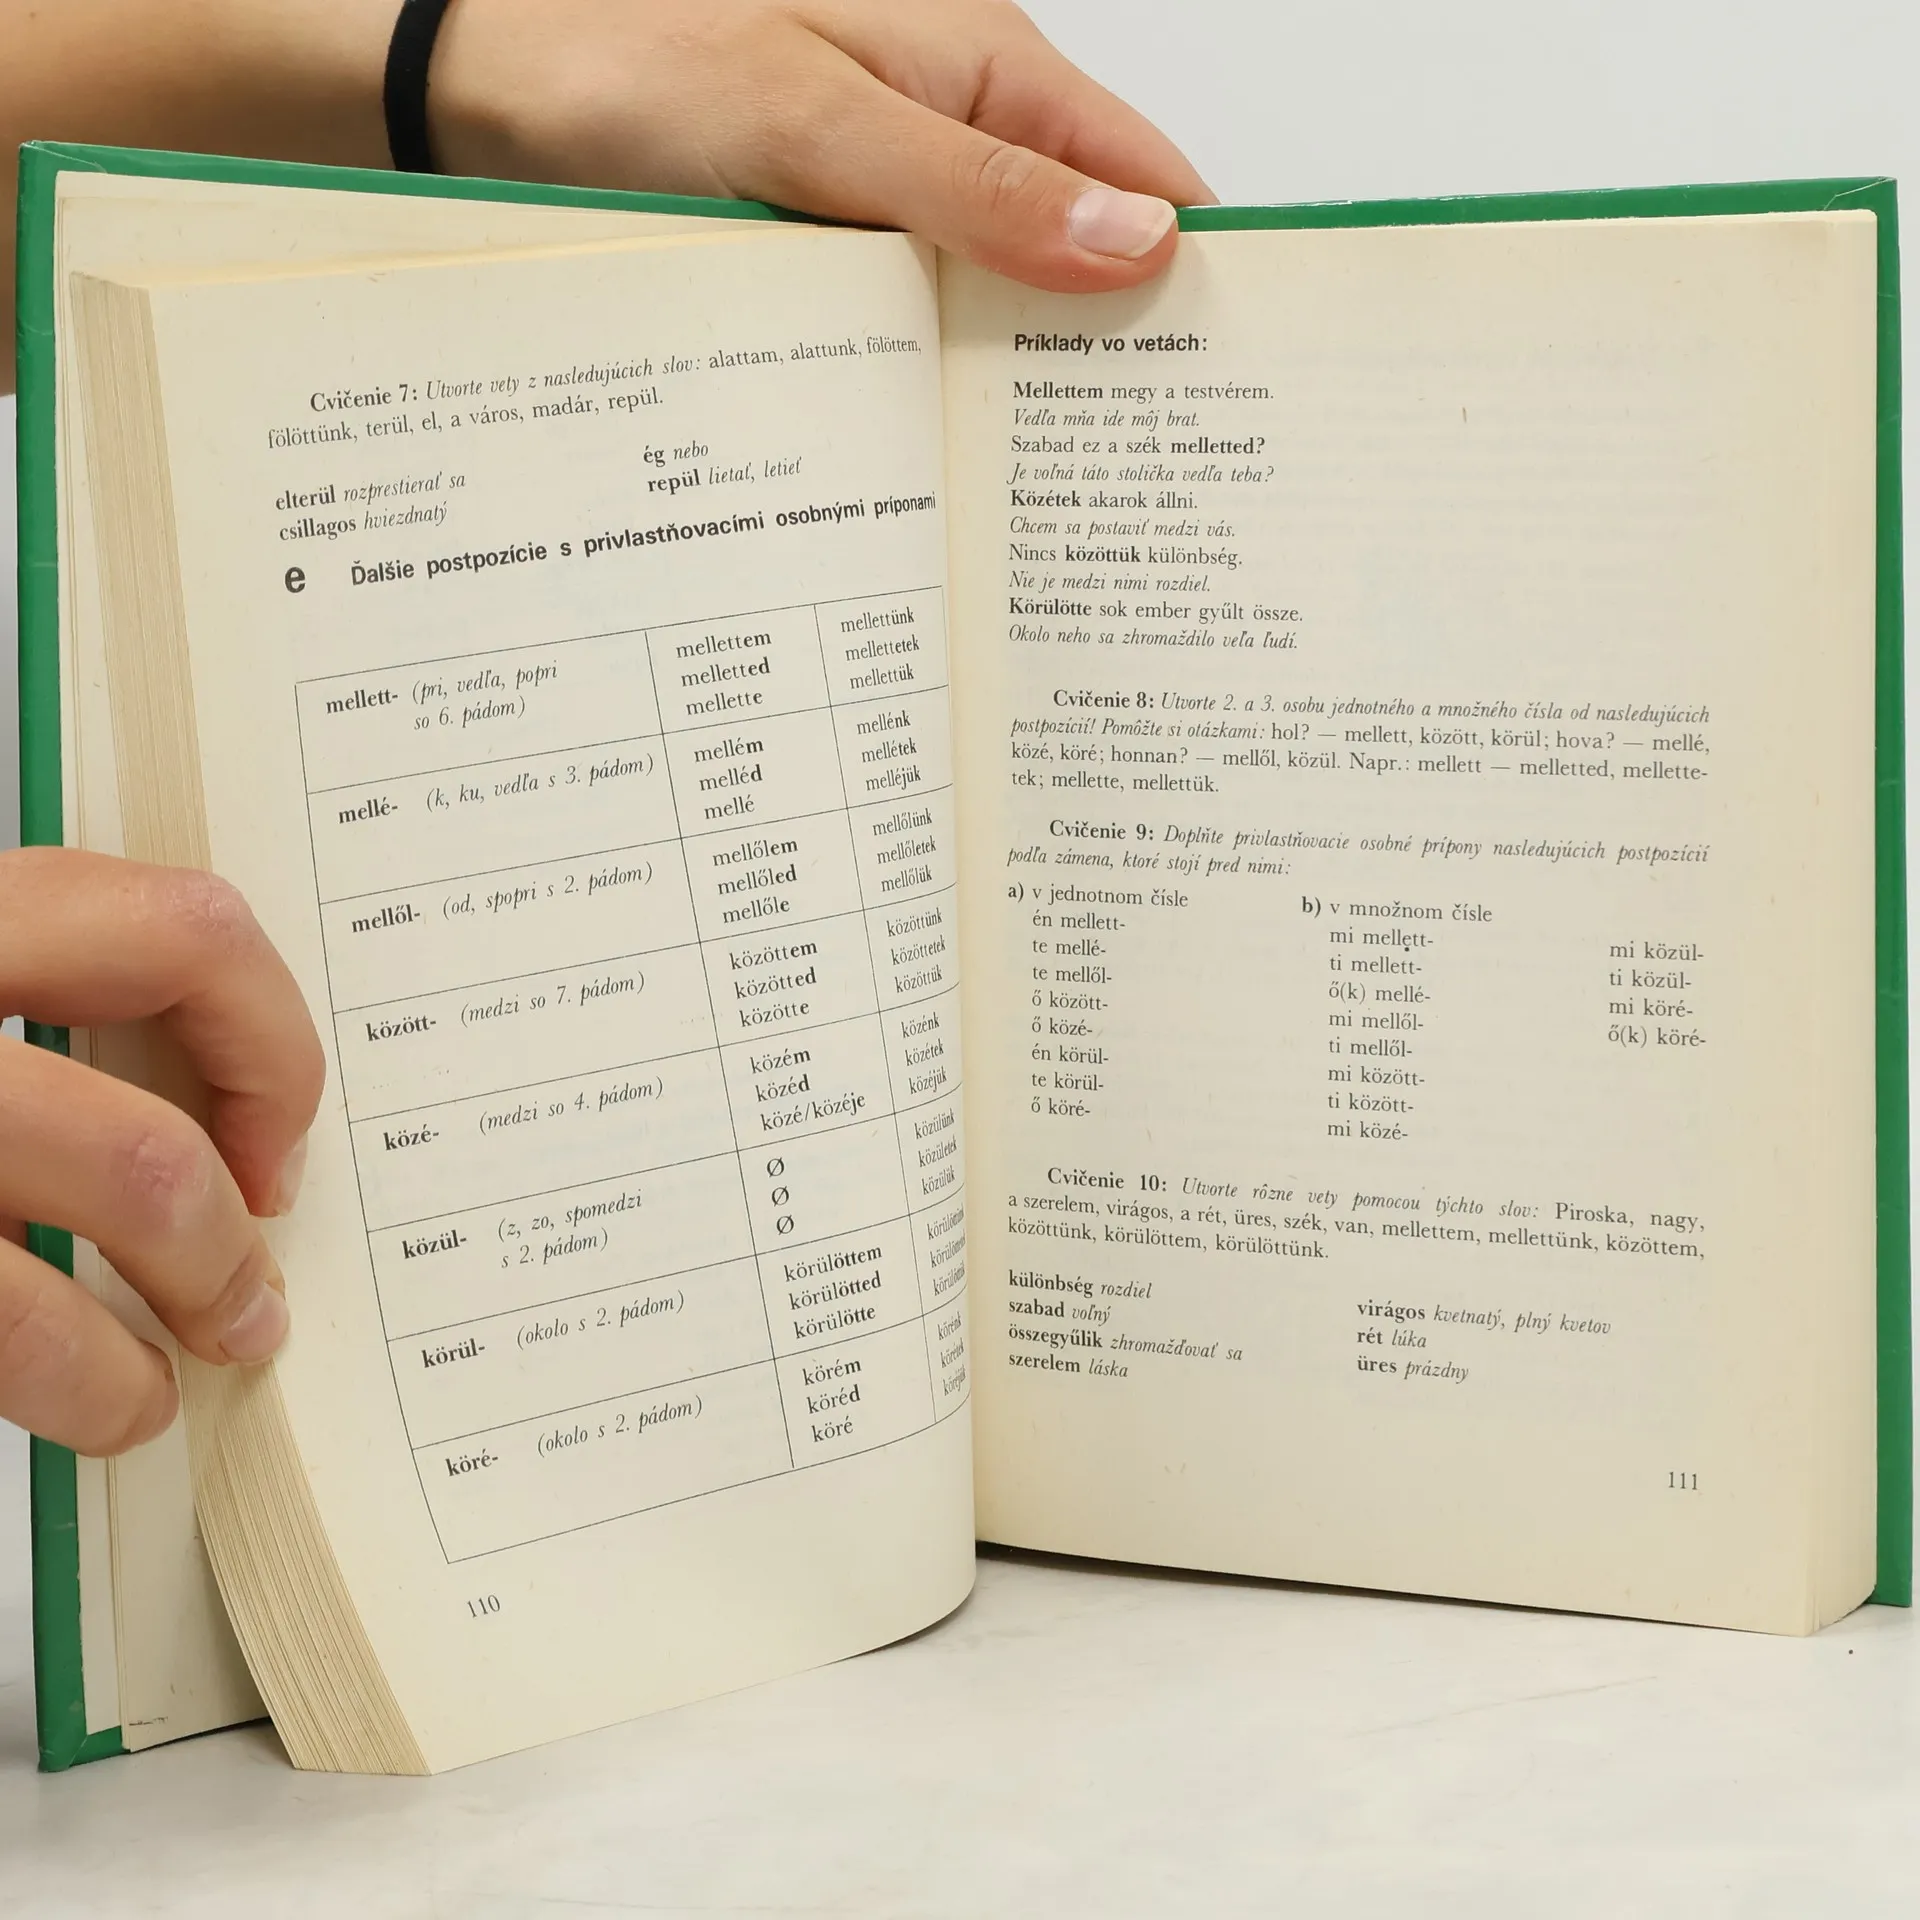 Cvičenie 7: Utvorte vety z nasledujúcich slov: alattam, alattunk, fölöttem,
fölöttünk, terül, el, a város, madár, repül.
elterül rozprestierať sa
csillagos hviezdnatý
ég nebo
repül lietať, letieť
e Ďalšie postpozície s privlastňovacími osobnými príponami
mellett- (pri, vedľa, popri
so 6. pádom)
mellettem
melletted
mellette
mellettünk
mellettetek
mellettük
mellé- (k, ku, vedľa s 3. pádom)
mellém
melléd
mellé
mellénk
mellétek
melléjük
mellől- (od, spopri s 2. pádom)
mellőlem
mellőled
mellőle
mellőlünk
mellőletek
mellőlük
között- (medzi so 7. pádom)
közöttem
közötted
közötte
közöttünk
közöttetek
közöttük
közé- (medzi so 4. pádom)
közém
közéd
közé/közéje
közénk
közétek
közéjük
közül- (z, zo, spomedzi
s 2. pádom)
Ø
Ø
Ø
közülünk
közületek
közülük
körül- (okolo s 2. pádom)
körülöttem
körülötted
körülötte
köré- (okolo s 2. pádom)
körém
köréd
köré
körénk
110
Príklady vo vetách:
Mellettem megy a testvérem.
Vedľa mňa ide môj brat.
Szabad ez a szék melletted?
Je voľná táto stolička vedľa teba?
Közétek akarok állni.
Chcem sa postaviť medzi vás.
Nincs közöttük különbség.
Nie je medzi nimi rozdiel.
Körülötte sok ember gyűlt össze.
Okolo neho sa zhromaždilo veľa ľudí.
Cvičenie 8: Utvorte 2. a 3. osobu jednotného a množného čísla od nasledujúcich
postpozícií! Pomôžte si otázkami: hol? — mellett, között, körül; hova? — mellé,
közé, köré; honnan? — mellől, közül. Napr.: mellett — melletted, mellette-
tek; mellette, mellettük.
Cvičenie 9: Doplňte privlastňovacie osobné prípony nasledujúcich postpozícií
podľa zámena, ktoré stojí pred nimi:
a) v jednotnom čísle
én mellett-
te mellé-
te mellől-
ő között-
ő közé-
én körül-
te körül-
ő köré-
b) v množnom čísle
mi mellett-
ti mellett-
ő(k) mellé-
mi mellől-
ti mellől-
mi között-
ti között-
mi közé-
mi közül-
ti közül-
mi köré-
ő(k) köré-
Cvičenie 10: Utvorte rôzne vety pomocou týchto slov: Piroska, nagy,
a szerelem, virágos, a rét, üres, szék, van, mellettem, mellettünk, közöttem,
közöttünk, körülöttem, körülöttünk.
különbség rozdiel
szabad voľný
összegyűlik zhromažďovať sa
szerelem láska
virágos kvetnatý, plný kvetov
rét lúka
üres prázdny
111